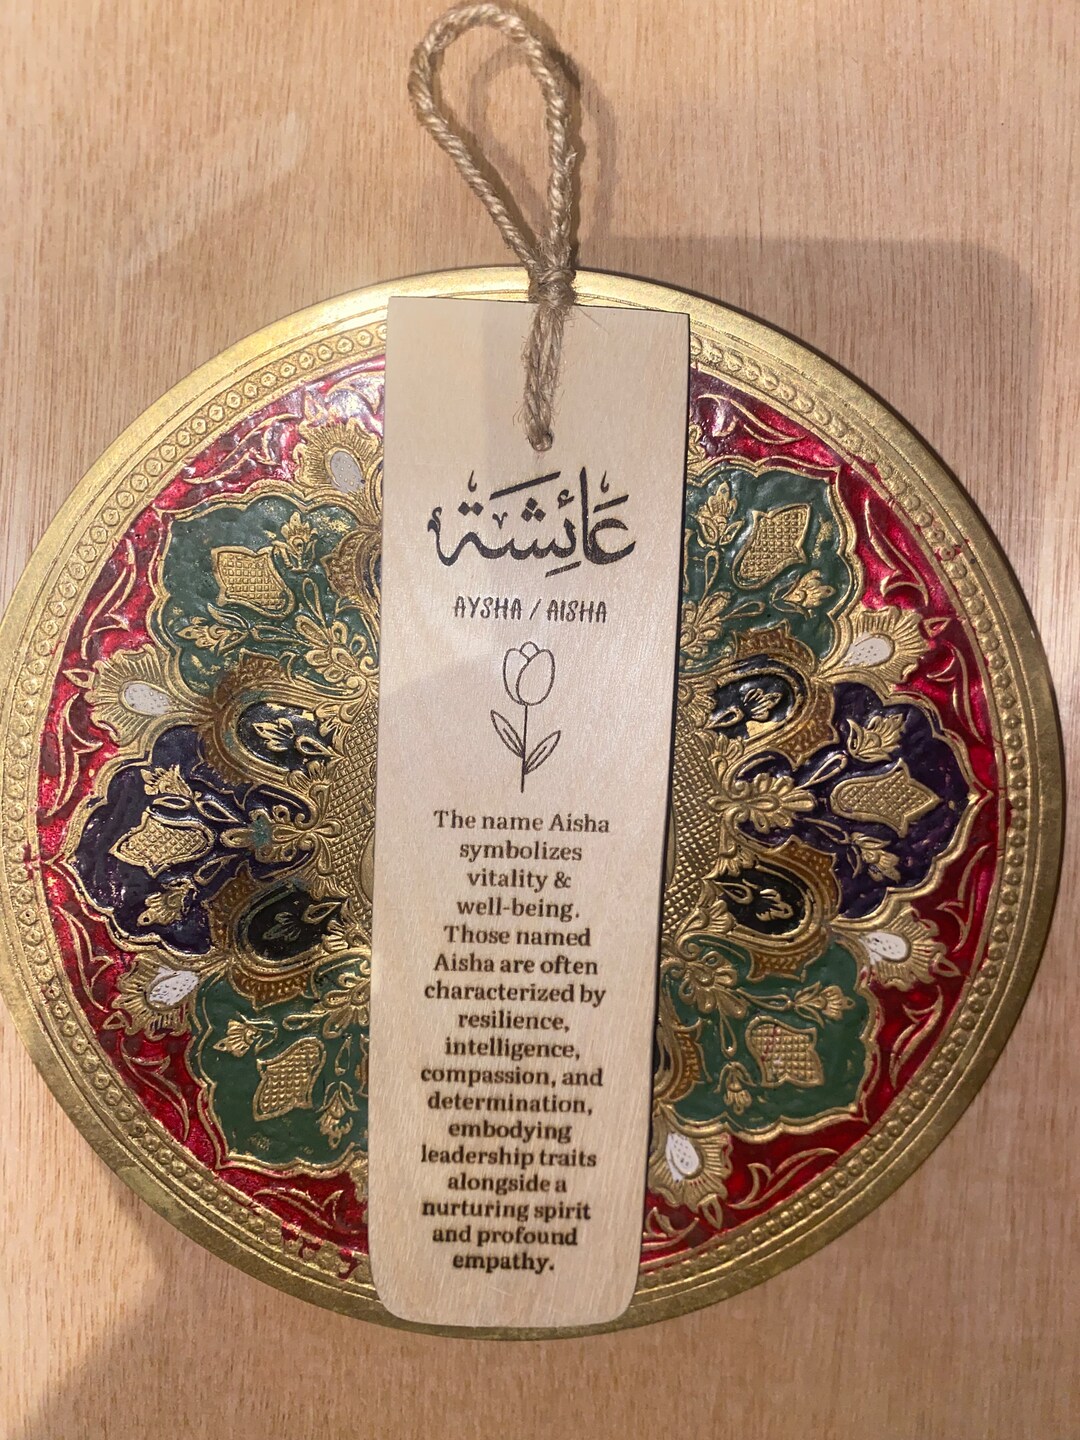 عَائِشَة
AYSHA / AISHA
The name Aisha
symbolizes
vitality &
well-being.
Those named
Aisha are often
characterized by
resilience,
intelligence,
compassion, and
determination,
embodying
leadership traits
alongside a
nurturing spirit
and profound
empathy.